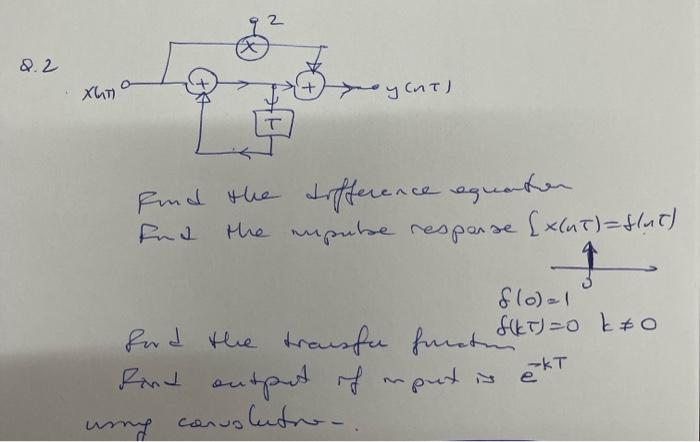 2
X
Q.2
x(nT)
+
+
y(nT)
T
Find the difference equation
Find the impulse response [x(nT)=δ(nT)
0
δ(0)=1
δ(kT)=0 k≠0
Find the transfer function
Find output if input is e^-kT
using convolution.